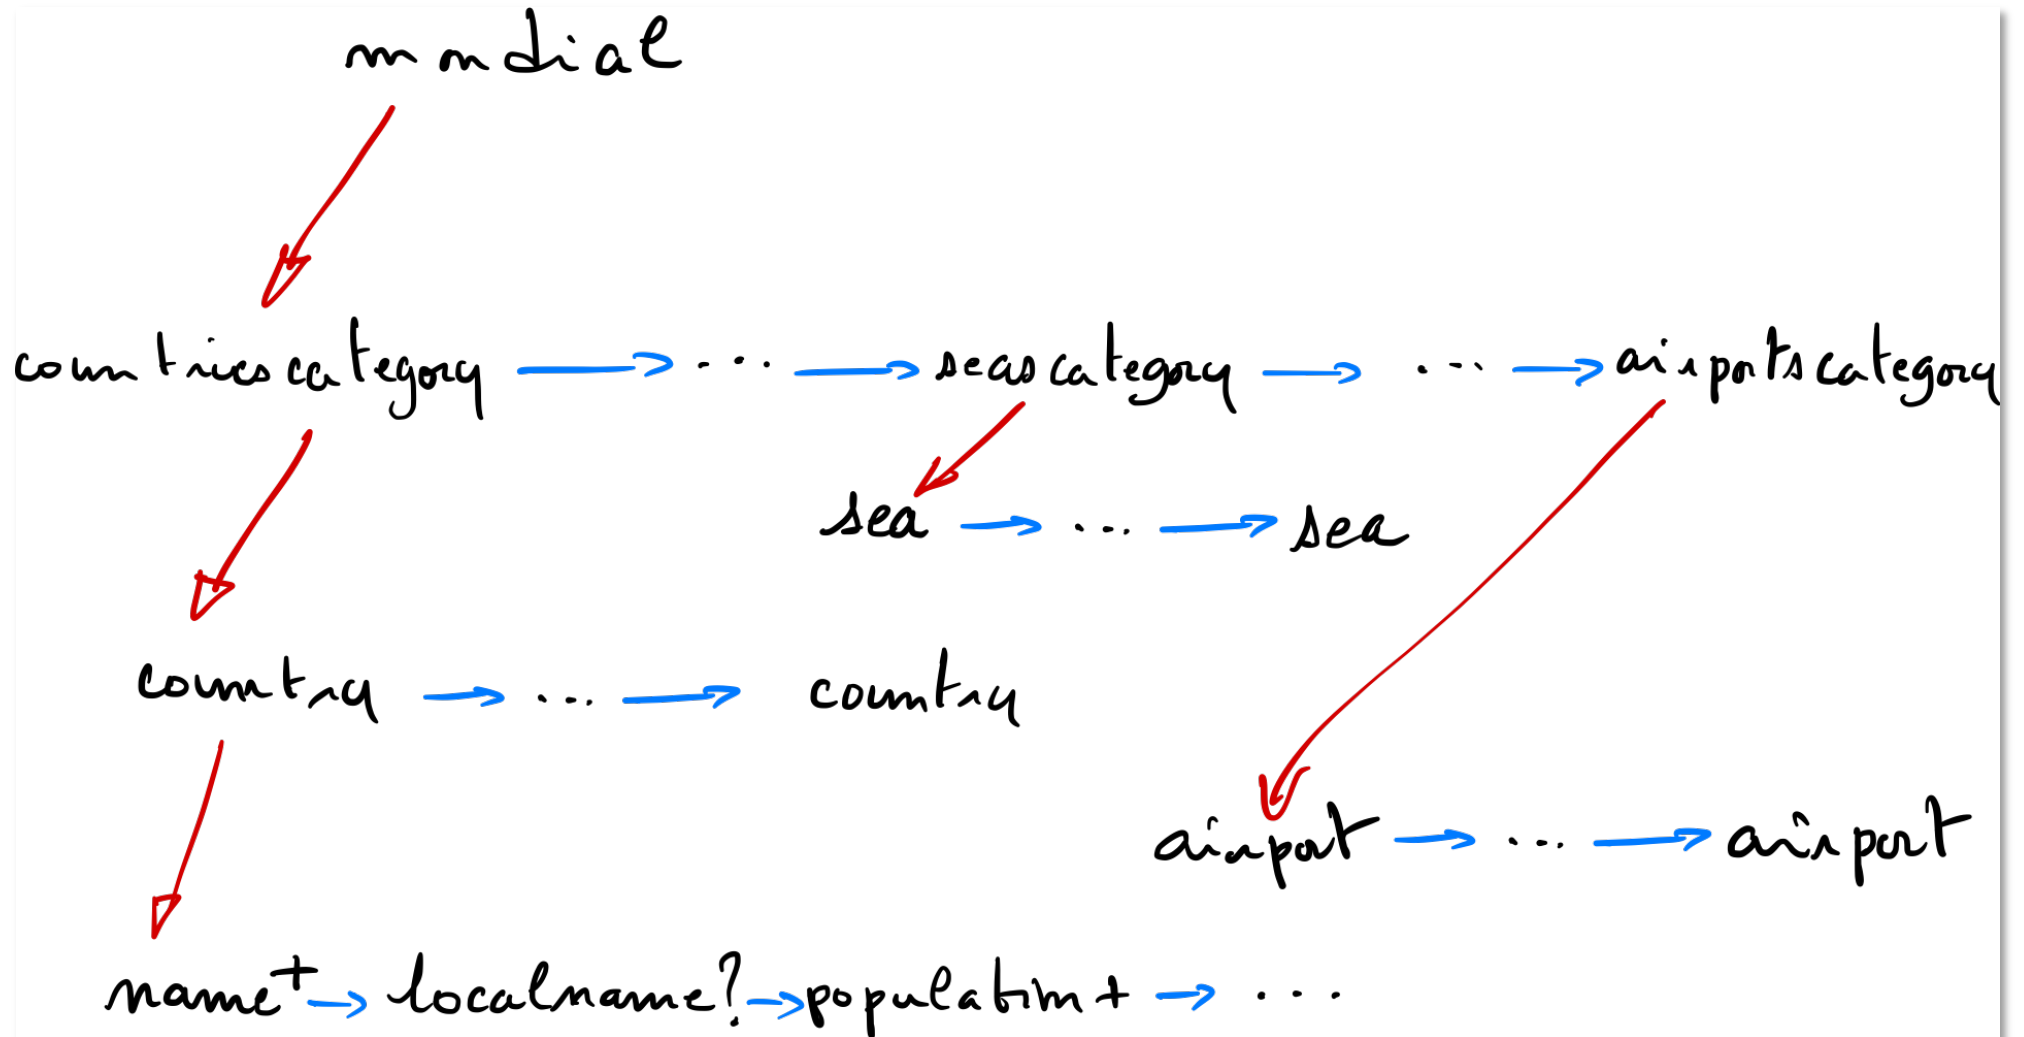 mondial
countriescategory ... seascategory ... airportscategory
sea ... sea
country ... country
airport ... airport
name+ localname? population+ ...